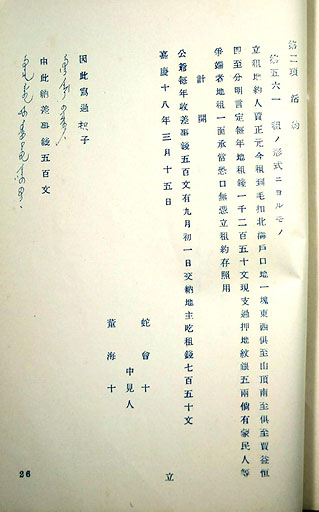 第二項 活約
第五六一 租ノ形式ニヨルモノ
立租地約人賈正元今租到毛扣北海戶口地一塊東西俱至山頂南至俱至賈益恒
四至分明言定每年地租錢一千二百五十文現支過押地紋銀五兩倘有蒙民人等
爭端者地租一面承當恐口無憑立租約存照用
計開
公爺每年收差事錢五百文有九月初一日交納地主吃租錢七百五十文
嘉慶十八年三月十五日
立
蛇會十
中見人
董海十
因此寫過
子
由此納差事錢五百文
26